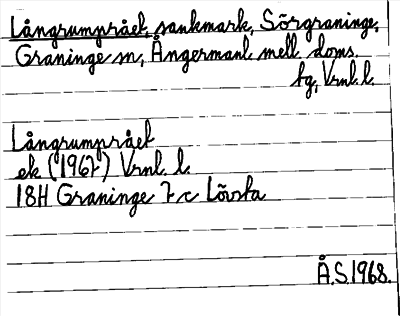 Långrumpråel, sankmark, Sörgraninge,
Graninge sn, Ångermanl. mell. doms.
tg, Vrnl. l.
Långrumpråel
ek (1967) Vrnl. l.
18H Graninge 7 c Lövsta
Å.S. 1968.